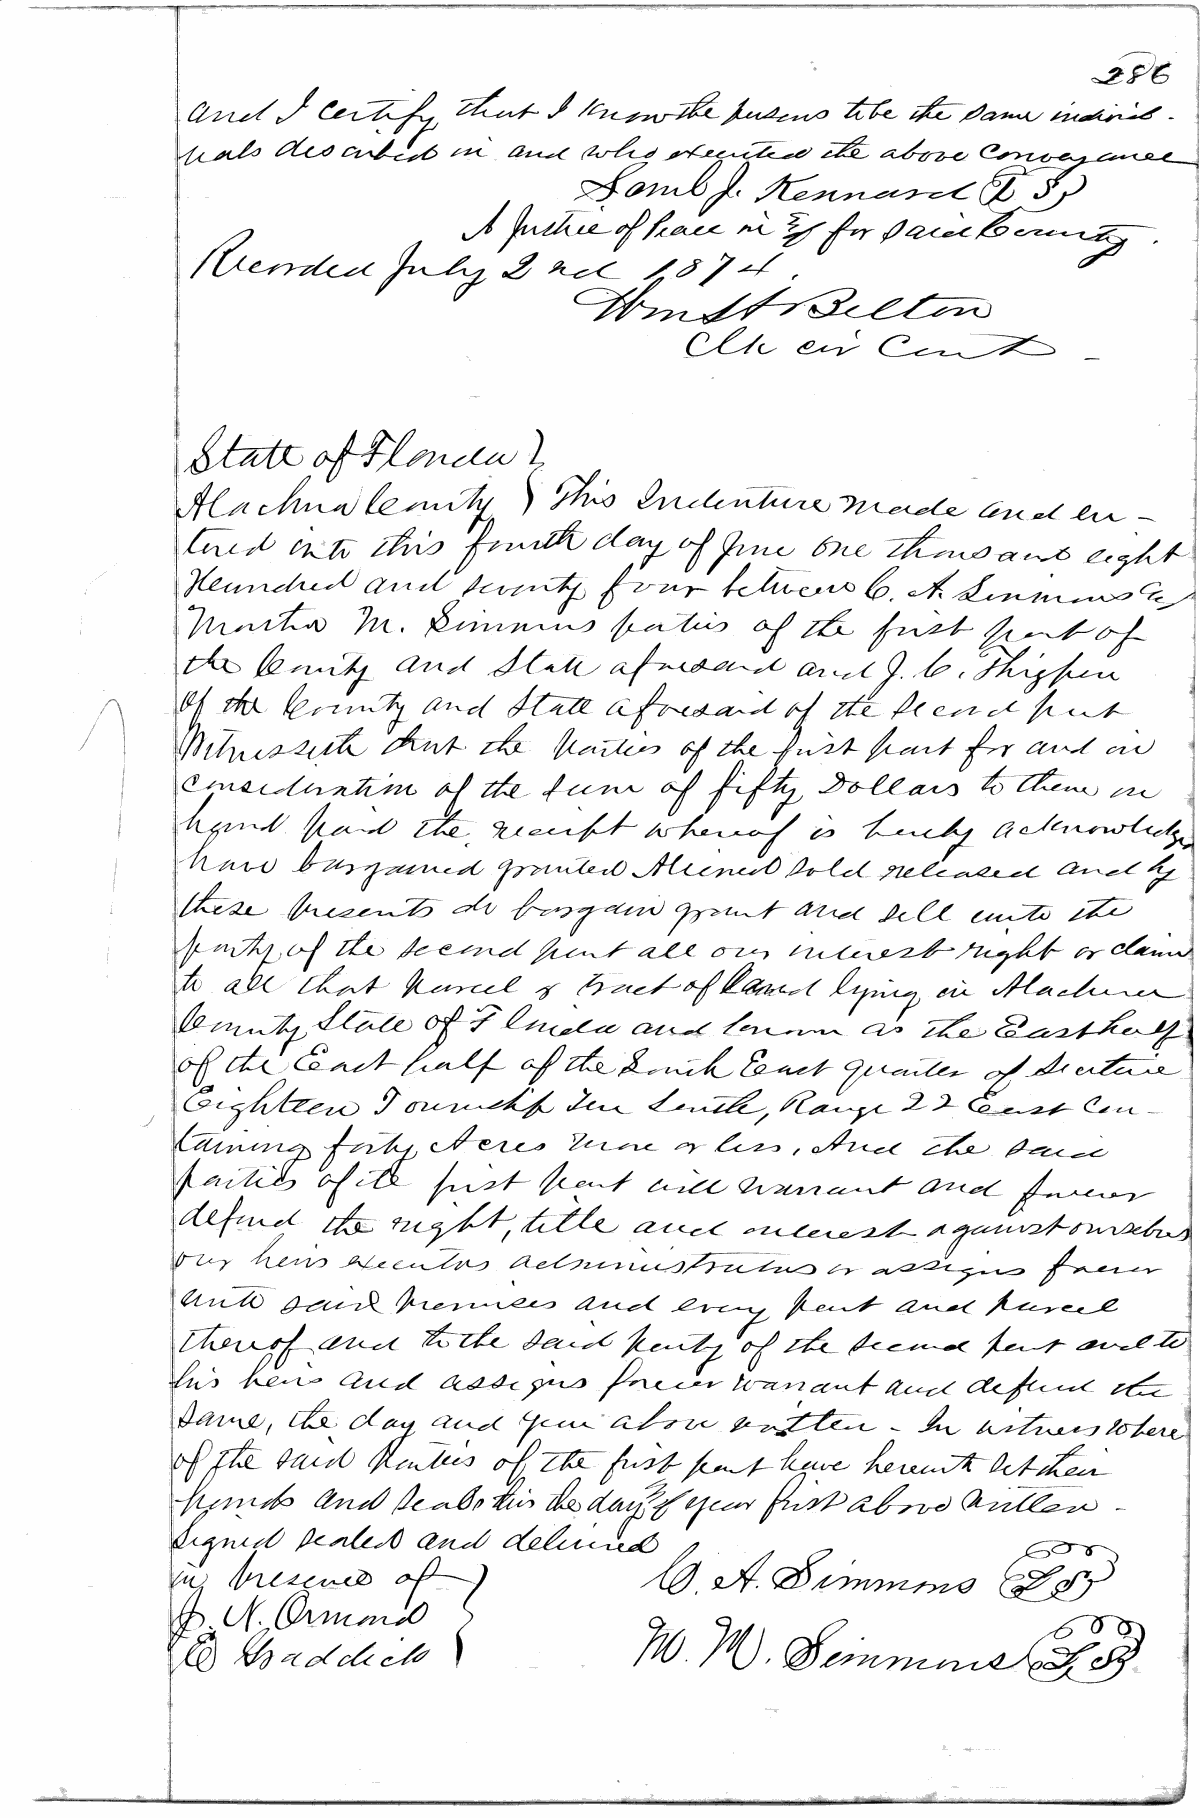 286
and I certify that I know the persons to be the same individ-
uals described in and who executed the above conveyance
Saml J. Kennard (L S)
A Justice of Peace in & for said County.
Recorded July 2nd 1874.
Wm H Belton
Clk cir Court
State of Florida }
Alachua County } This Indenture made and en-
tered into this fourth day of June one thousand eight
Hundred and seventy four between C. A. Simmons &
Martha M. Simmons parties of the first part of
the County and State aforesaid and J. C. Thigpen
of the County and State aforesaid of the second part
Witnesseth that the parties of the first part for and in
consideration of the sum of fifty Dollars to them in
hand paid the receipt whereof is hereby acknowledged
have bargained granted Aliened sold released and by
these presents do bargain grant and sell unto the
party of the second part all our interest right or claim
to all that parcel or tract of land lying in Alachua
County State of Florida and known as the East half
of the East half of the South East quarter of Section
Eighteen Township Ten South, Range 22 East Con-
taining forty Acres more or less, And the said
parties of the first part will warrant and forever
defend the right, title and interest against ourselves
our heirs executors administrators or assigns forever
unto said premises and every part and parcel
thereof and to the said party of the second part and to
his heirs and assigns forever warrant and defend the
same, the day and year above written - In witness where
of the said parties of the first part have hereunto set their
hands and seals this the day & year first above written -
signed sealed and delivered
in presence of }
J. N. Ormond
C. A. Simmons (L S)
E Haddick
M. M. Simmons (L S)